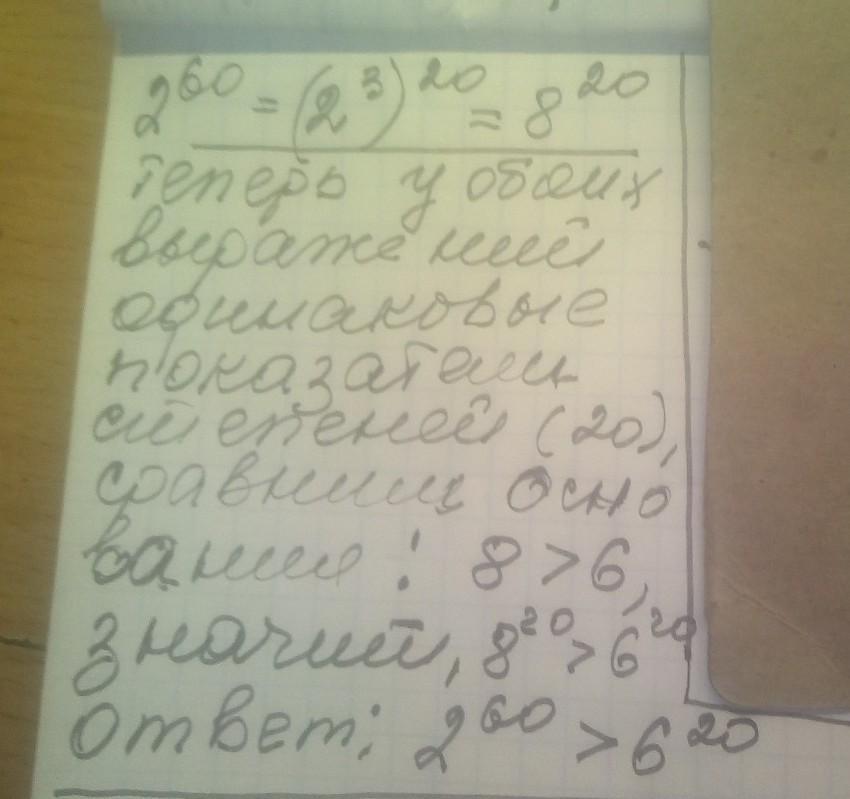 2^60 = (2^3)^20 = 8^20
теперь у обоих
выражений
одинаковые
показатели
степеней (20),
сравним осно
вания: 8 > 6,
значит, 8^20 > 6^20
ответ: 2^60 > 6^20